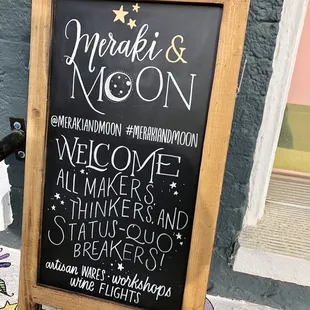 Meraki &
MOON
@MERAKIANDMOON #MERAKIANDMOON
WELCOME
ALL MAKERS,
THINKERS, AND
STATUS-QUO
BREAKERS!
artisan WARES · workshops
wine FLIGHTS